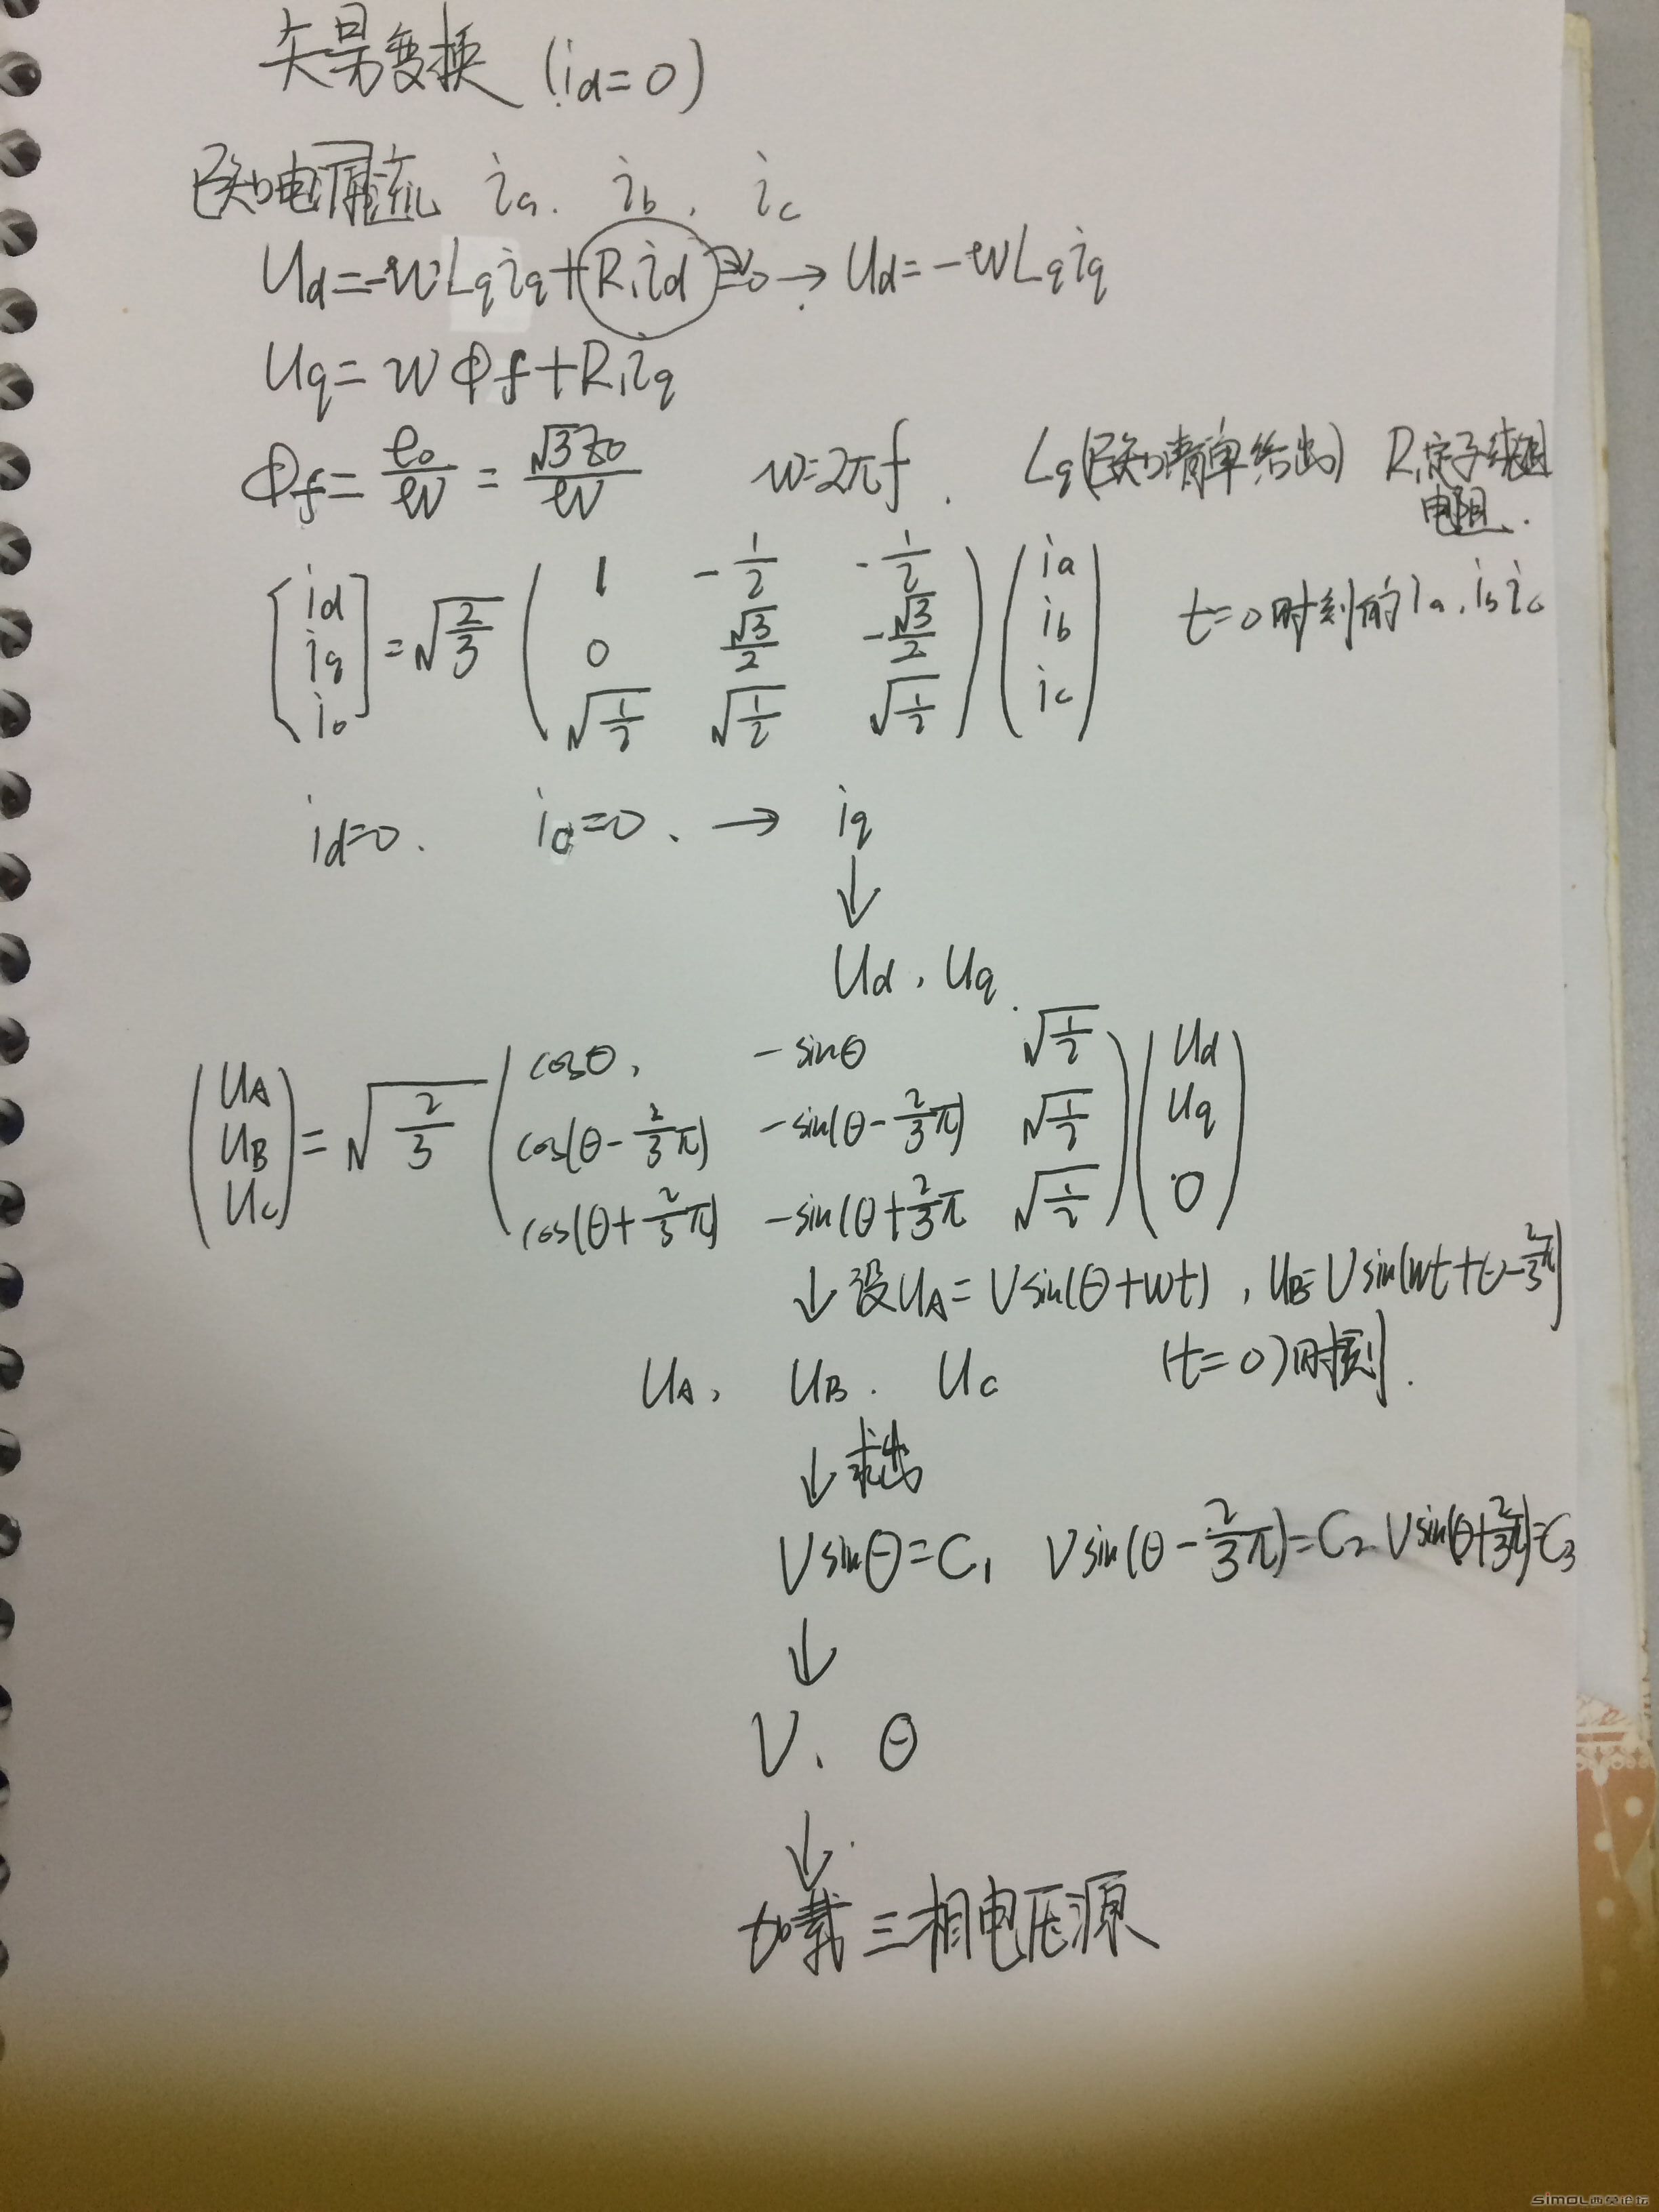 矢量变换 (id=0)
已知电流 ia. ib. ic
Ud=-wLqiq+R1id=0 → Ud=-wLqiq
Uq=wΦf+R1iq
Φf=e0/w=√3E0/w w=2πf. Lq(已知清单给出) R1定子绕组
电阻.
[id iq i0]=√(2/3) (1 -1/2 -1/2; 0 √3/2 -√3/2; √(1/2) √(1/2) √(1/2)) (ia ib ic) t=0时刻的ia.ib ic
id=0. i0=0. → iq
↓
Ud. Uq.
(UA UB UC)=√(2/3) (cosθ, -sinθ √(1/2); cos(θ-2/3π) -sin(θ-2/3π) √(1/2); cos(θ+2/3π) -sin(θ+2/3π √(1/2)) (Ud Uq 0)
↓ 设UA=Vsin(θ+wt), UB=Vsin(wt+θ-2/3π)
UA, UB. UC (t=0)时刻.
↓ 求出
Vsinθ=C1 Vsin(θ-2/3π)=C2 Vsin(θ+2/3π)=C3
↓
V. θ
↓
加载三相电压源
simol西莫论坛